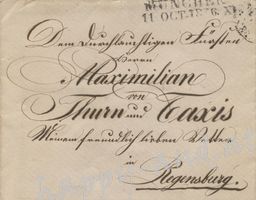 MÜNCHEN
11 OCT. 1878
Dem Durchlauchtigen Fürsten
Herrn
Maximilian
von
Thurn und Taxis
Meinem freundlich lieben Vetter
in
Regensburg.